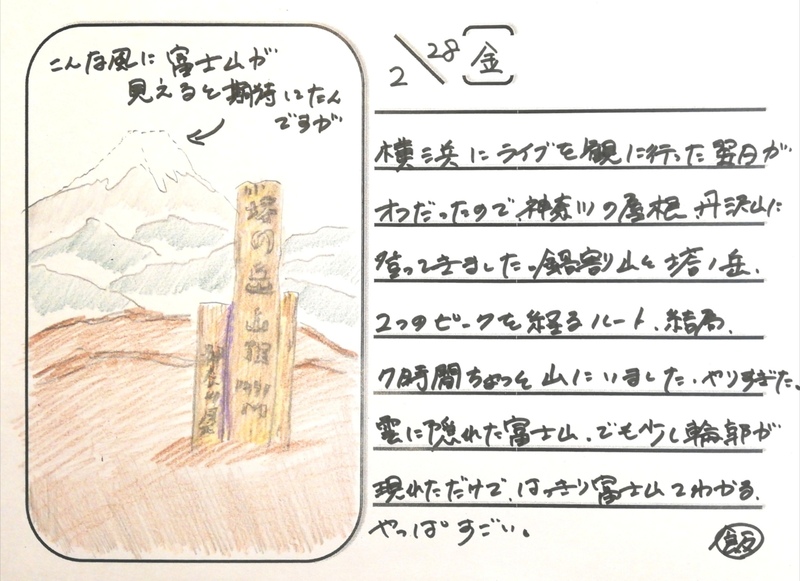 こんな風に富士山が
見えると期待してたん
ですが
塔の岳山頂
2/28 [金]
横浜にライブを観に行った翌日が
オフだったので神奈川の屋根丹沢山に
登ってきました。鍋割山と塔ノ岳、
2つのピークを経るルート、結局、
7時間ちょっと山にいました、やりすぎた。
雲に隠れた富士山、でも少し輪郭が
現れただけで、はっきり富士山てわかる、
やっぱすごい。
飯